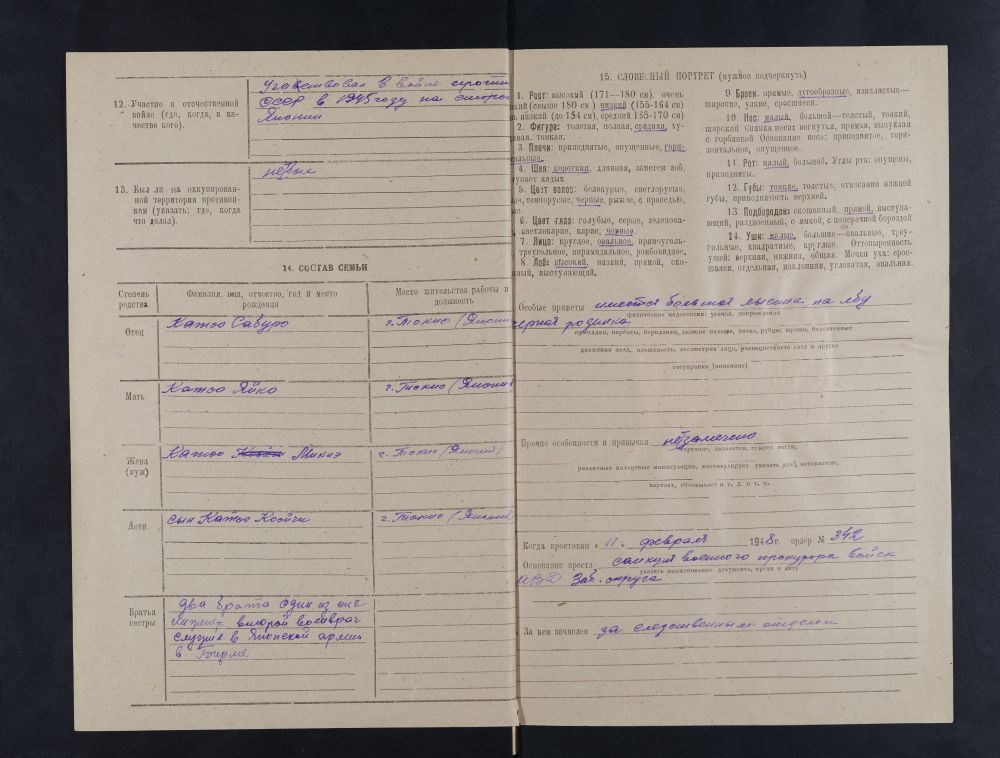 12. Участие в отечественной войне (где, когда, в качестве кого).
Участвовал в войне против
СССР в 1945 году на стороне
Японии
13. Был ли на оккупированной территории противником (указать: где, когда что делал).
не был
14. СОСТАВ СЕМЬИ
Степень родства
Фамилия, имя, отчество, год и место рождения
Место жительства работы и должность
Отец
Катоо Сабуро
г. Токио (Япони
Мать
Катоо Яйко
г. Токио (Япония
Жена (муж)
Катоо Микиэ
г. Токио (Япония)
Дети
сын Катоо Коойчи
г. Токио (Япония
Братья сестры
два брата один из них
инженер, второй военврач
служил в Японской армии
в Бирме
15. СЛОВЕСНЫЙ ПОРТРЕТ (нужное подчеркнуть)
1. Рост: высокий (171—180 см) очень
кий (свыше 180 см) низкий (155-164 см)
нь низкий (до 154 см), средний 165-170 см)
2. Фигура: толстая, полная, средняя, ху-
щавая, тонкая.
3. Плечи: приподнятые, опущенные, гори-
нтальные.
4. Шея: короткая, длинная, заметен зоб,
тупает кадык
5. Цвет волос: белокурые, светлорусые,
е, темнорусые, черные, рыжие, с проседью,
ые.
6. Цвет глаз: голубые, серые, зеленова-
светлокарие, карие, черные.
7. Лицо: круглое, овальное, прямоуголь-
треугольное, пирамидальное, ромбовидное.
8. Лоб: высокий, низкий, прямой, ско-
нный, выступающий.
9 Брови: прямые, дугообразные, извилистые—
широкие, узкие, сросшиеся.
10 Нос: малый, большой—толстый, тонкий,
широкий Спинка носа: вогнутая, прямая, выпуклая
с горбинкой Основание носа: приподнятое, гори-
зонтальное, опущенное.
11. Рот: малый, большой. Углы рта: опущены,
приподняты.
12. Губы: тонкие, толстые, отвисание нижней
губы, приподнятость верхней.
13. Подбородок: скошенный, прямой, выступа-
ющий, раздвоенный, с ямкой, с поперечной бороздой
14. Уши: малые, большие—овальные, треу-
гольные, квадратные, круглые. Оттопыренность
ушей: верхняя, нижняя, общая. Мочка уха: срос-
шаяся, отдельная, наклонная, угловатая, овальная.
Особые приметы имеется большая лысина на лбу
физические недостатки: увечья, повреждения
черная родинка
припадки, нарботы, бородавки, лишние пальцы, пятна, рубцы, шрамы, болезненные
движения тела, плешивость, асимметрия лица, разноцветность глаз и другие
татуировки (описание)
Прочие особенности и привычки не замечено
картавит, заикается, грызет ногти,
различные пальцевые манипуляции, жестикулирует указать как, автоматизм,
харкает, сплевывает и т. д. и т. п.
Когда арестован « 11 » февраля 1948 г. ордер № 342
Основание ареста санкция военного прокурора войск
указать наименование документа, орган и дату
МВД Заб. округа
За кем зачислен за следственным отделом